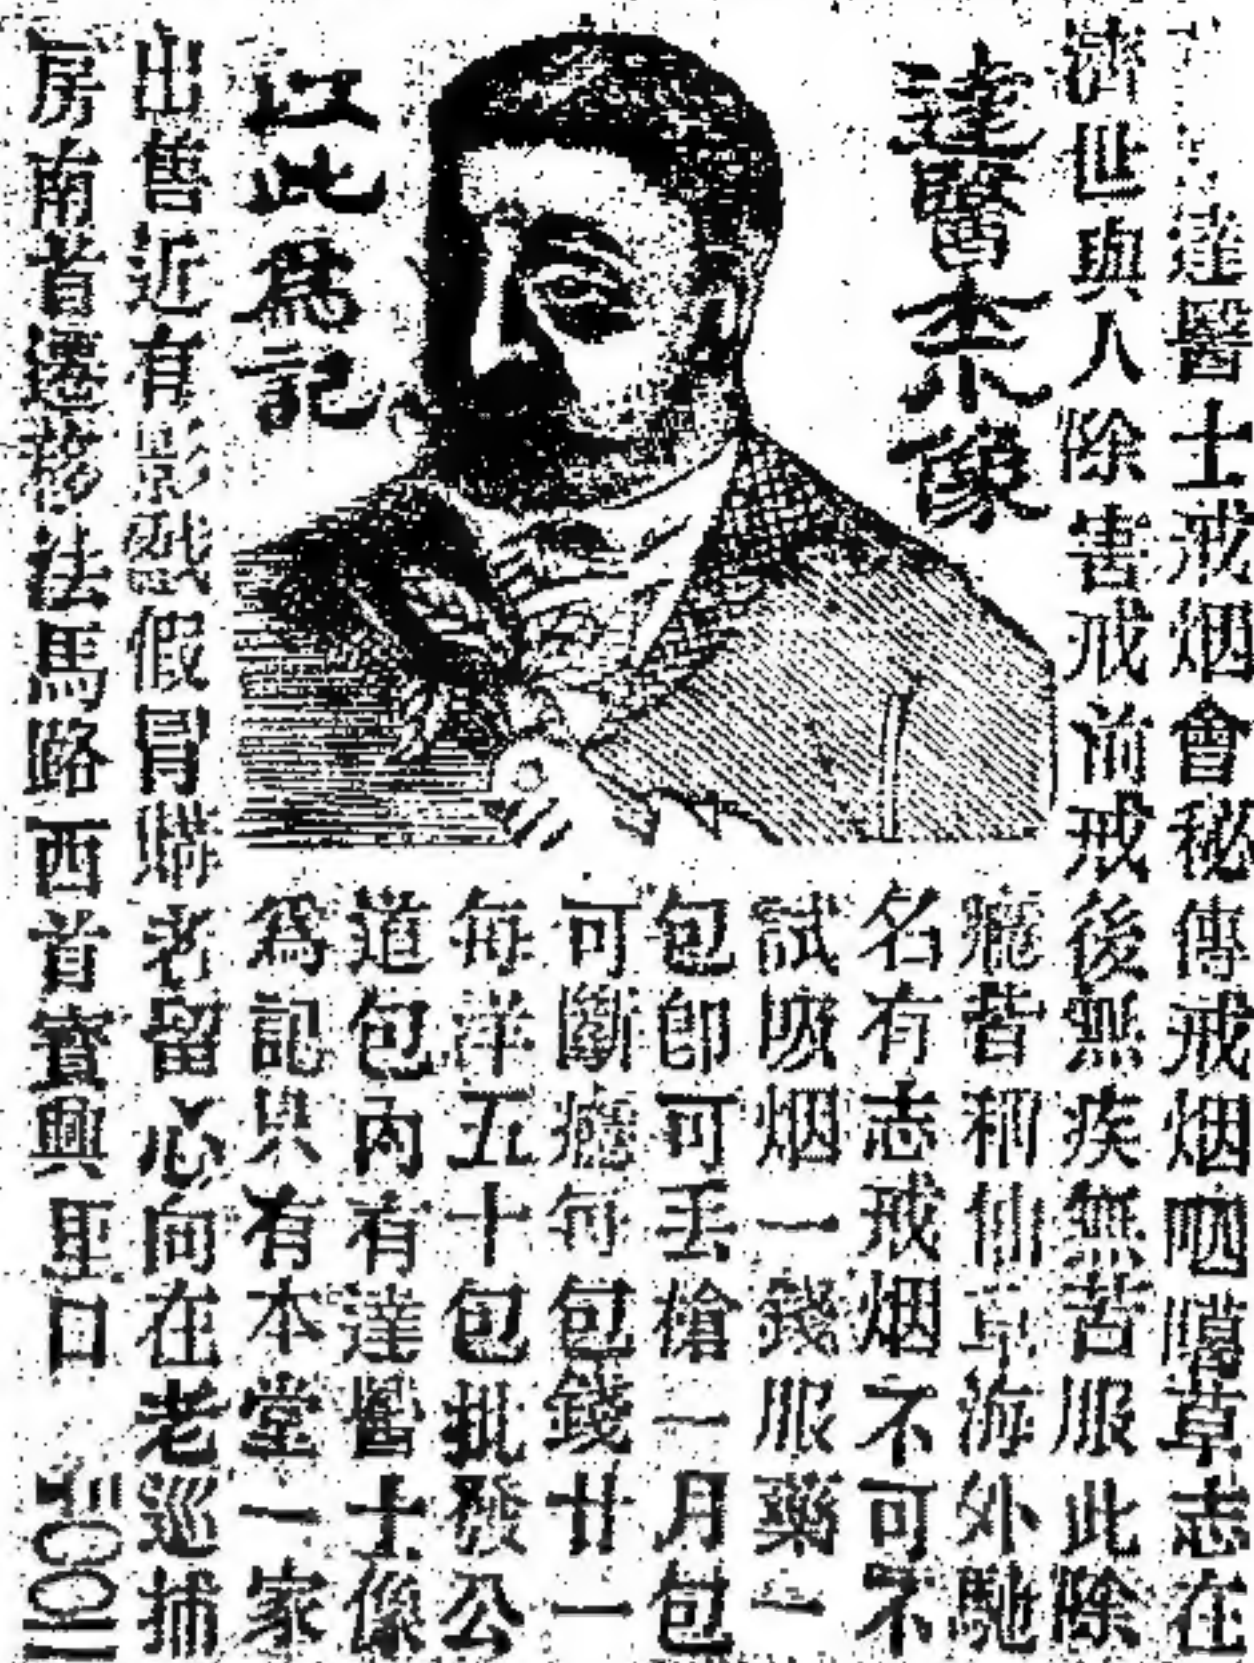 達醫士戒烟會秘傳戒烟咽囒草志在
濟世與人除害戒前戒後無疾無苦服此除
達醫士像
癮皆稱仙草海外馳
名有志戒烟不可不
試吸烟一錢服藥一
包即可丟槍一月包
可斷癮每包錢廿一
每洋五十包批發公
道包內有達醫士像
為記只有本堂一家
以此為記
出售近有影戤假冒購者留心向在老巡捕
房南首遷移法馬路西首寶興里口